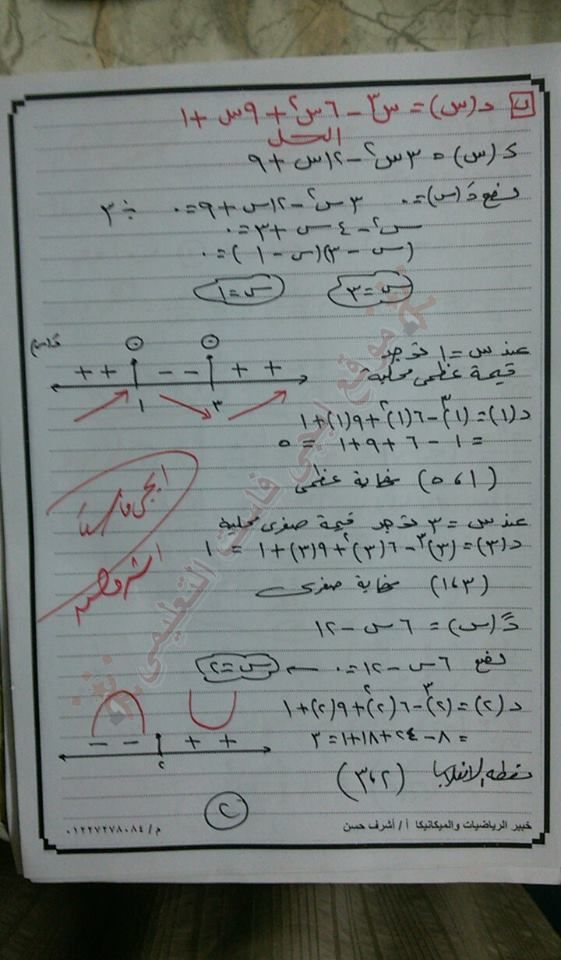 ب د(س) = س³ - ٦س² + ٩س + ١
الحل
دَ(س) = ٣س² - ١٢س + ٩
نضع دَ(س) = ٠ ٣س² - ١٢س + ٩ = ٠ ÷ ٣
س² - ٤س + ٣ = ٠
(س - ٣)(س - ١) = ٠
س = ٣ س = ١
عند س = ١ توجد
قيمة عظمى محلية
+ + - - + +
١ ٣
د(١) = (١)³ - ٦(١)² + ٩(١) + ١
= ١ - ٦ + ٩ + ١ = ٥
(١، ٥) نهاية عظمى
عند س = ٣ توجد قيمة صغرى محلية
د(٣) = (٣)³ - ٦(٣)² + ٩(٣) + ١ = ١
(٣، ١) نهاية صغرى
دً(س) = ٦س - ١٢
نضع ٦س - ١٢ = ٠ س = ٢
د(٢) = (٢)³ - ٦(٢)² + ٩(٢) + ١
= ٨ - ٢٤ + ١٨ + ١ = ٣
- - + +
٢
نقطة الانقلاب (٢، ٣)
ايجى فاست
اشرف حسن
٢
خبير الرياضيات والميكانيكا أ / أشرف حسن م / ٠١٢٢٧٢٧٨٠٨٤
موقع ايجى فاست التعليمى